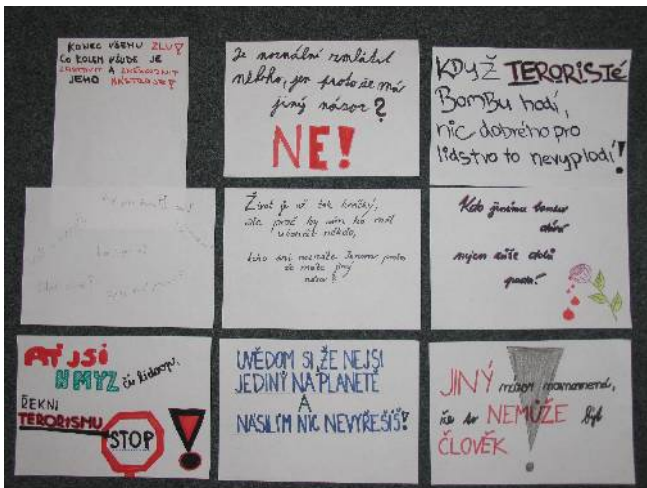 KONEC VŠEMU ZLU!
CO KOLEM VŠUDE JE
ZASTAVIT A ZNEŠKODNIT
JEHO NÁSTROJE!
Je normální zmlátit
někoho, jen proto že má
jiný názor?
NE!
KDYŽ TERORISTÉ
BomBu hodí,
nic dobrého pro
lidstvo to nevyplodí!
Život je už tak krátký,
ale proč by nám ho měl
ukončit někdo,
koho ani neznáte. Jenom proto
že máte jiný
názor?
Kdo jinému bombu
dává
nejen růže dolů
padá!
AŤ JSI
HMYZ či lidoop,
ŘEKNI
TERORISMU
STOP
UVĚDOM SI, ŽE NEJSI
JEDINÝ NA PLANETĚ
A
NÁSILÍM NIC NEVYŘEŠÍŠ!
JINÝ názor neznamená,
že to NEMŮŽE být
ČLOVĚK